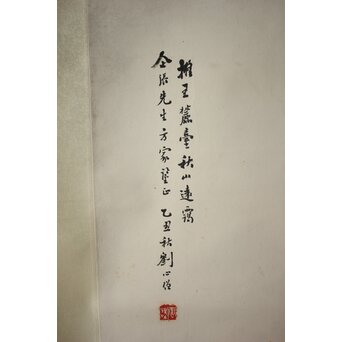 擬王麓臺秋山遠靄
仝滋先生方家鑒正 乙丑秋劉心從